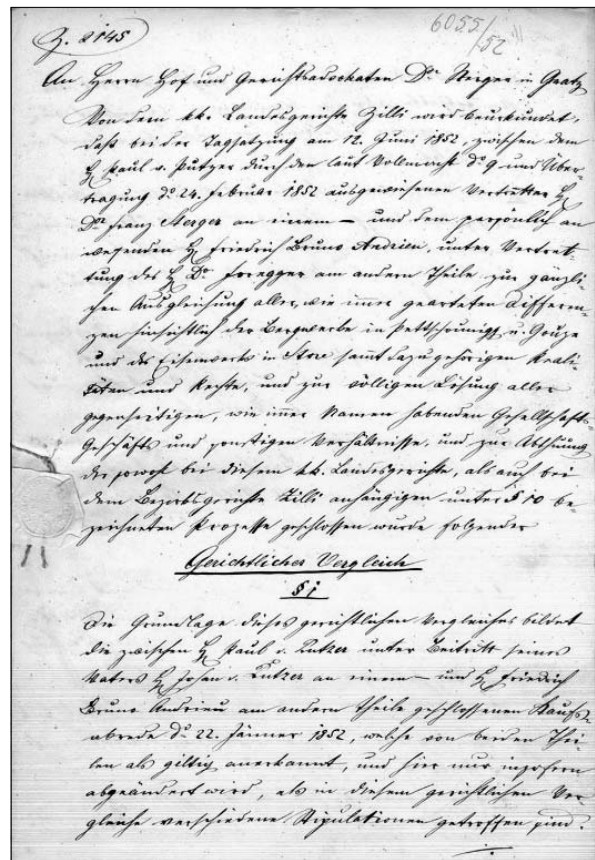 Z. 2145
6055/52
An Herrn Hof und Gerichtsadvokaten Dr. Sterger in Gratz
Von dem kk. Landesgerichte Zilli wird beurkundet,
daß bei der Tagsatzung am 12. Juni 1852, zwischen dem
H. Paul v. Putzer durch den laut Vollmacht dto 9 und Über-
tragung dto 24. Februar 1852 ausgewiesenen Vertretter H.
Dr. Franz Sterger an einem – und dem persönlich an
wesenden H. Friedrich Bruno Andrieu, unter Vertret-
tung des H. Dr. Foregger am andern Theile zur gänzli-
chen Ausgleichung aller, wie immer gearteten Differen-
zen hinsichtlich der Bergwerke in Pettschounigg u. Gouze
und des Eisenwerks in Store sammt dazu gehörigen Reali-
täten und Rechte, und zur völligen Lösung aller
gegenseitigen, wie immer Namen habenden Gesellschafts-
Geschäfts und sonstigen Verhältnisse, und zur Abthuung
der sowohl bei diesem kk. Landesgerichte, als auch bei
dem Bezirksgerichte Zilli anhängigen unter § 10 be-
zeichneten Prozesse geschlossen wurde folgender
Gerichtlicher Vergleich
§ 1
Die Grundlage dieses gerichtlichen Vergleiches bildet
die zwischen H. Paul v. Putzer unter Beitritt seines
Vaters H. Johan v. Putzer an einem – und H. Friedrich
Bruno Andrieu am andern Theile geschlossenen Kaufs-
abrede dto 22. Jänner 1852, welche von beiden Thei-
len als giltig anerkannt, und hier nur insofern
abgeändert wird, als in diesem gerichtlichen Ver-
gleiche verschiedene Stipulationen getroffen sind.